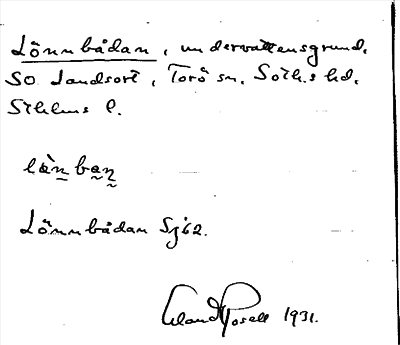 Lönnbådan, undervattensgrund,
SO Landsort, Torö sn, Soth.s hd,
Sthlms l.
län ban
Lönnbådan Sj62.
Erland Rosell 1931.